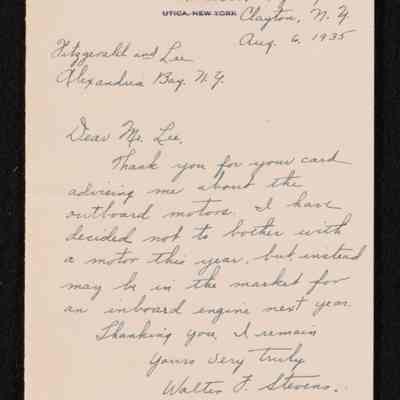 UTICA, NEW YORK
Clayton, N. Y.
Aug. 6, 1935
Fitzgerald and Lee
Alexandria Bay, N.Y.
Dear Mr. Lee,
Thank you for your card
advising me about the
outboard motors. I have
decided not to bother with
a motor this year, but instead
may be in the market for
an inboard engine next year.
Thanking you, I remain
Yours very truly
Walter F. Stevens.